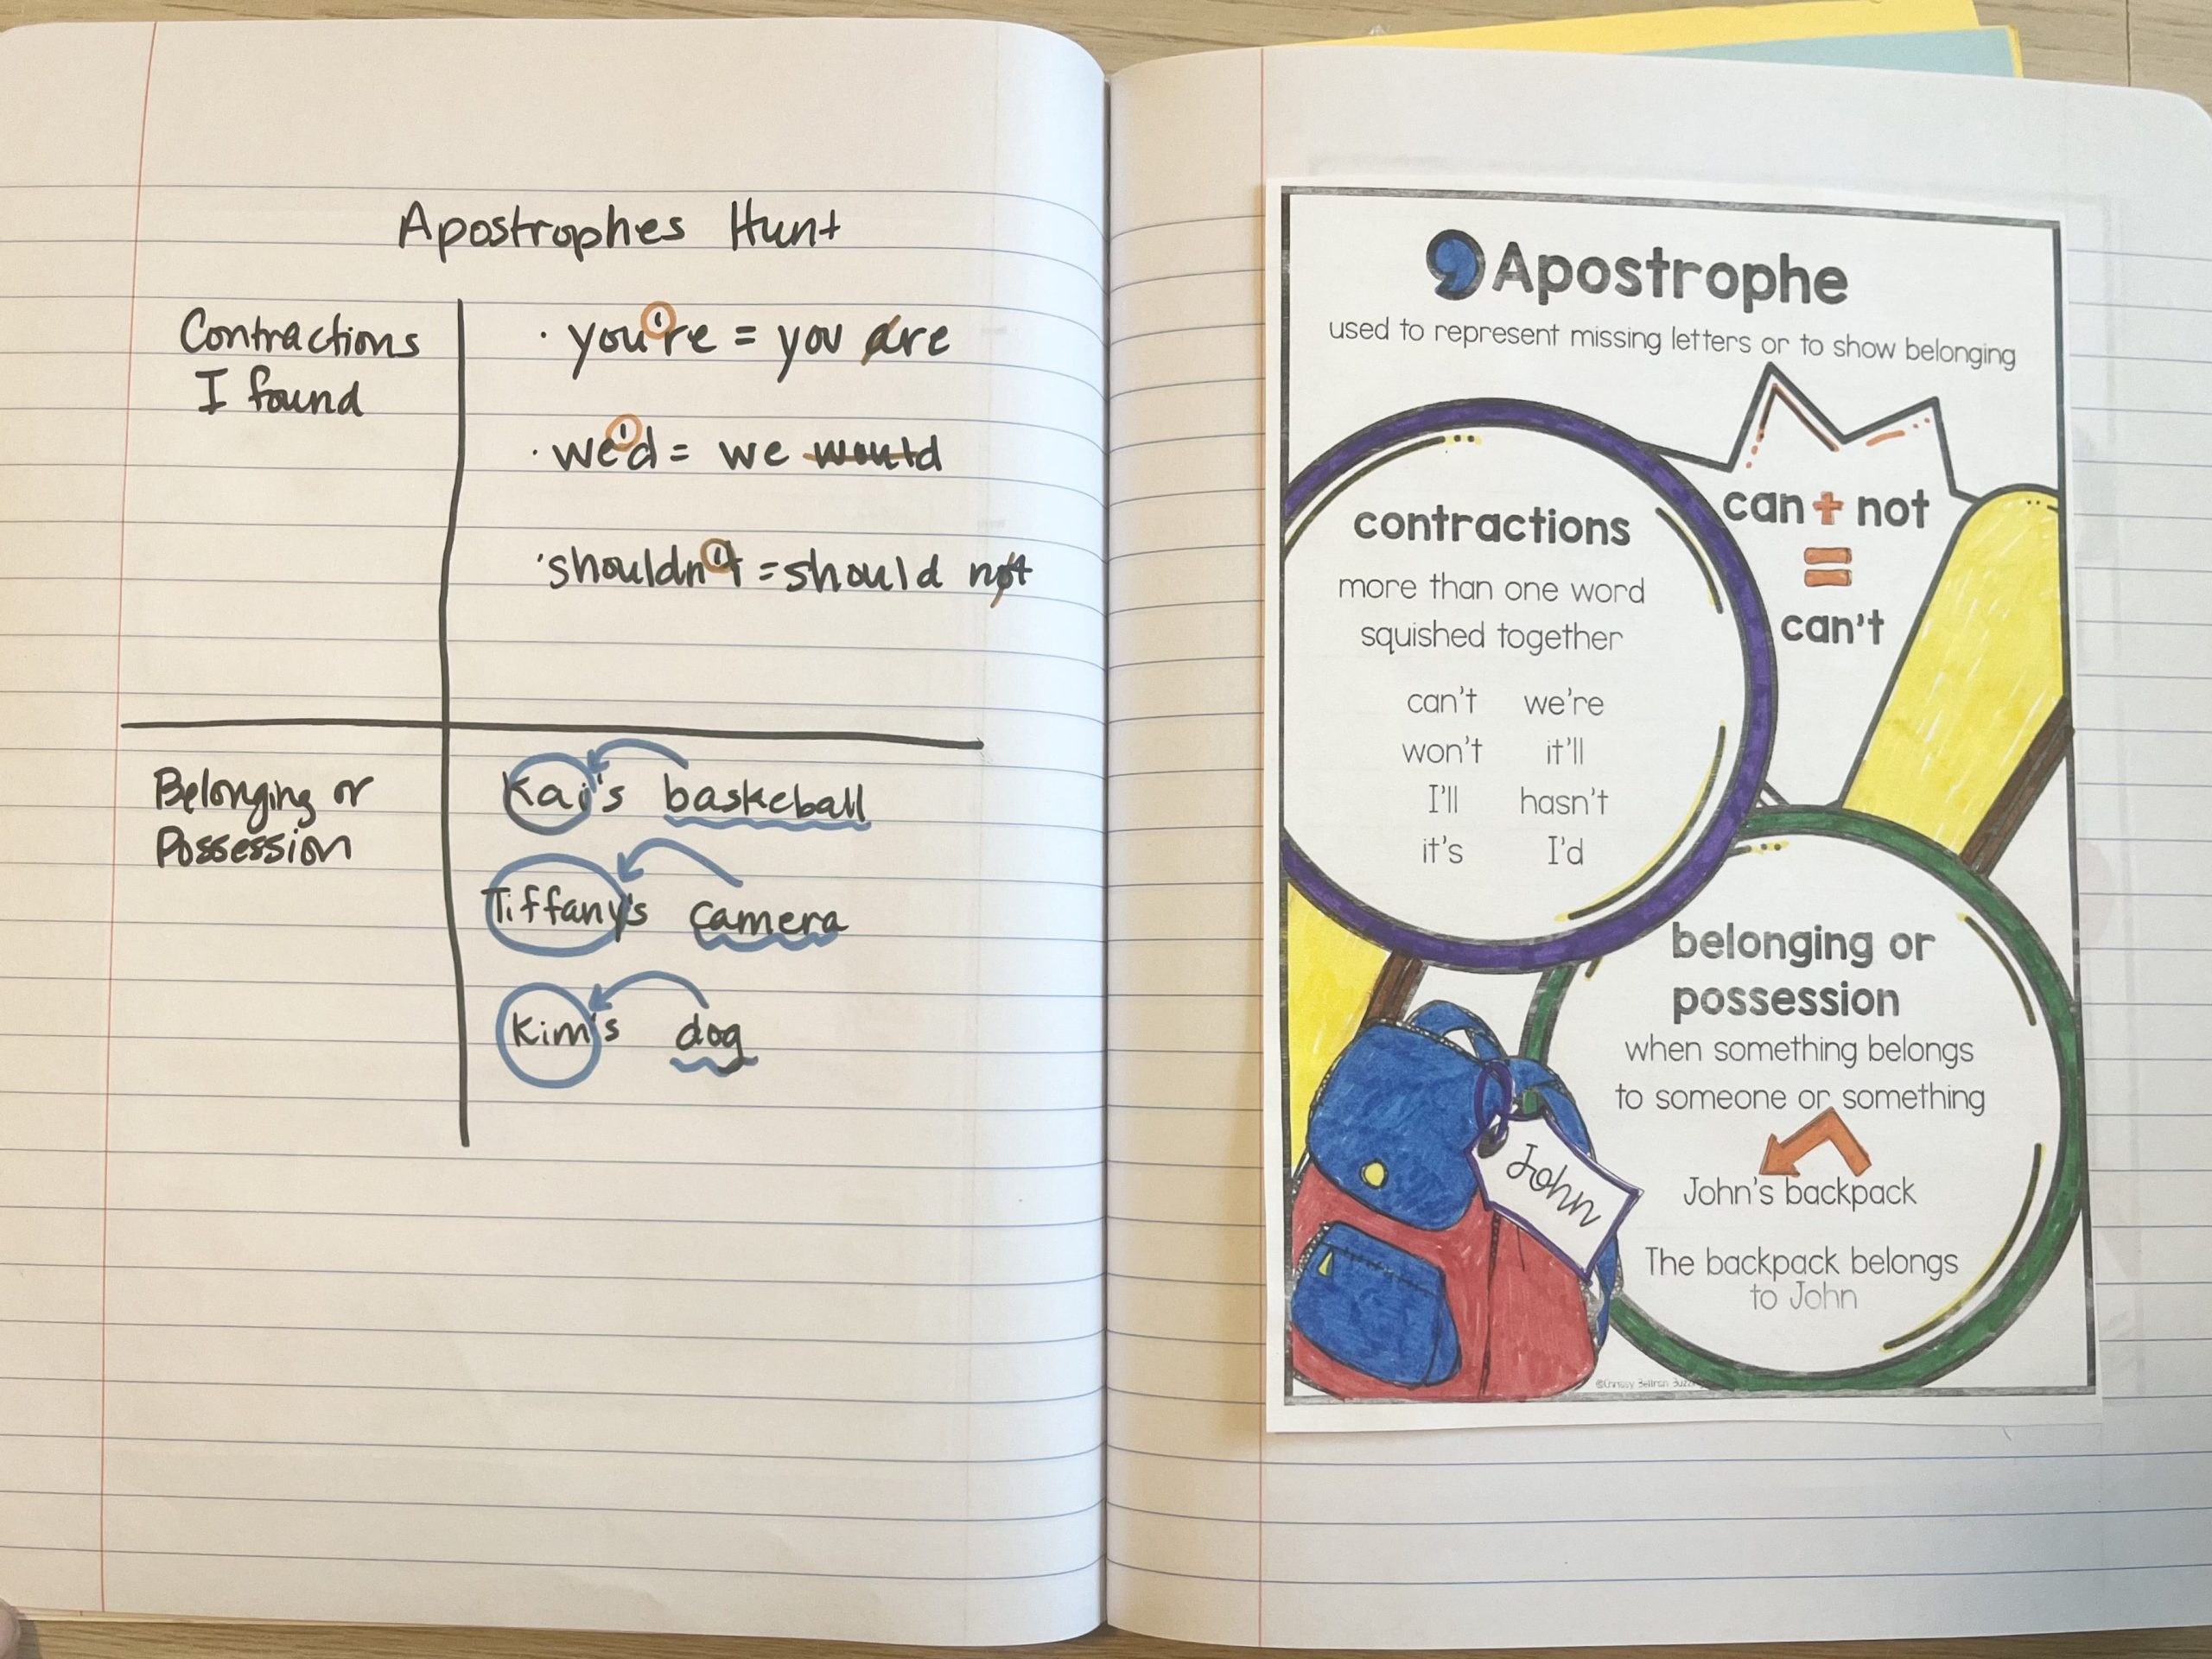 Apostrophes Hunt
Contractions
I found
· you're = you are
· we'd = we would
· shouldn't = should not
Belonging or
Possession
Kai's baskeball
Tiffany's camera
Kim's dog
Apostrophe
used to represent missing letters or to show belonging
contractions
more than one word
squished together
can't we're
won't it'll
I'll hasn't
it's I'd
can + not
=
can't
belonging or
possession
when something belongs
to someone or something
John's backpack
The backpack belongs
to John
John
©Chrissy Beltran